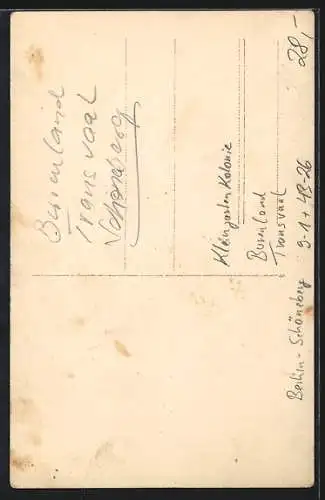 Burenland
Transvaal
Schöneberg
Kleingarten Kolonie
Burenland
Transvaal
Berlin - Schöneberg 9-1 + 49-26
28,-